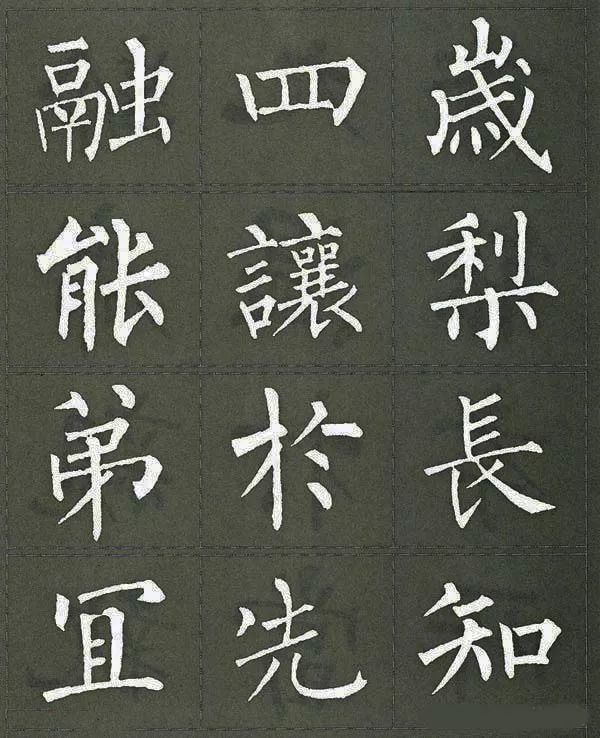 融四歲
能讓梨
弟於長
宜先知